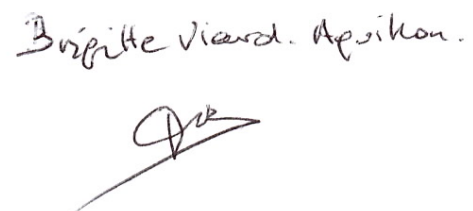 Brigitte Viard. Aguillon.